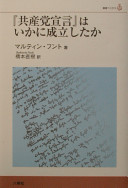 『共産党宣言』は
いかに成立したか
マルティン・フント 著
橋本直樹 訳
八朔社